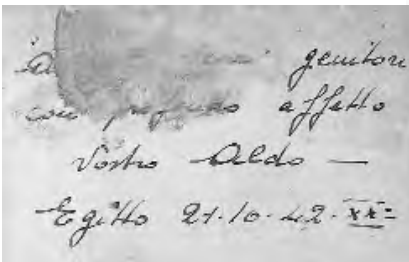 genitori
con profondo affetto
Vostro Aldo —
Egitto 21.10.42.XX=